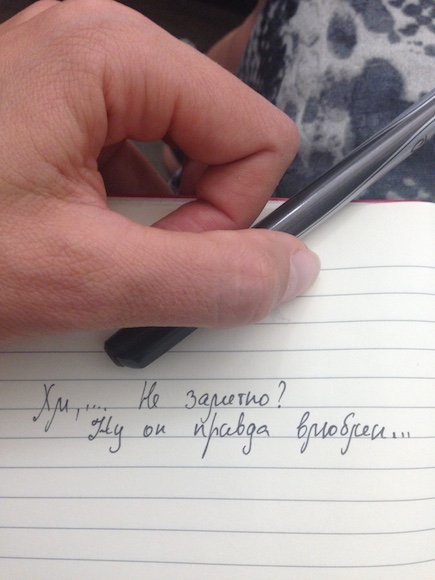 Хм,... Не заметно?
Ну он правда влюблен...